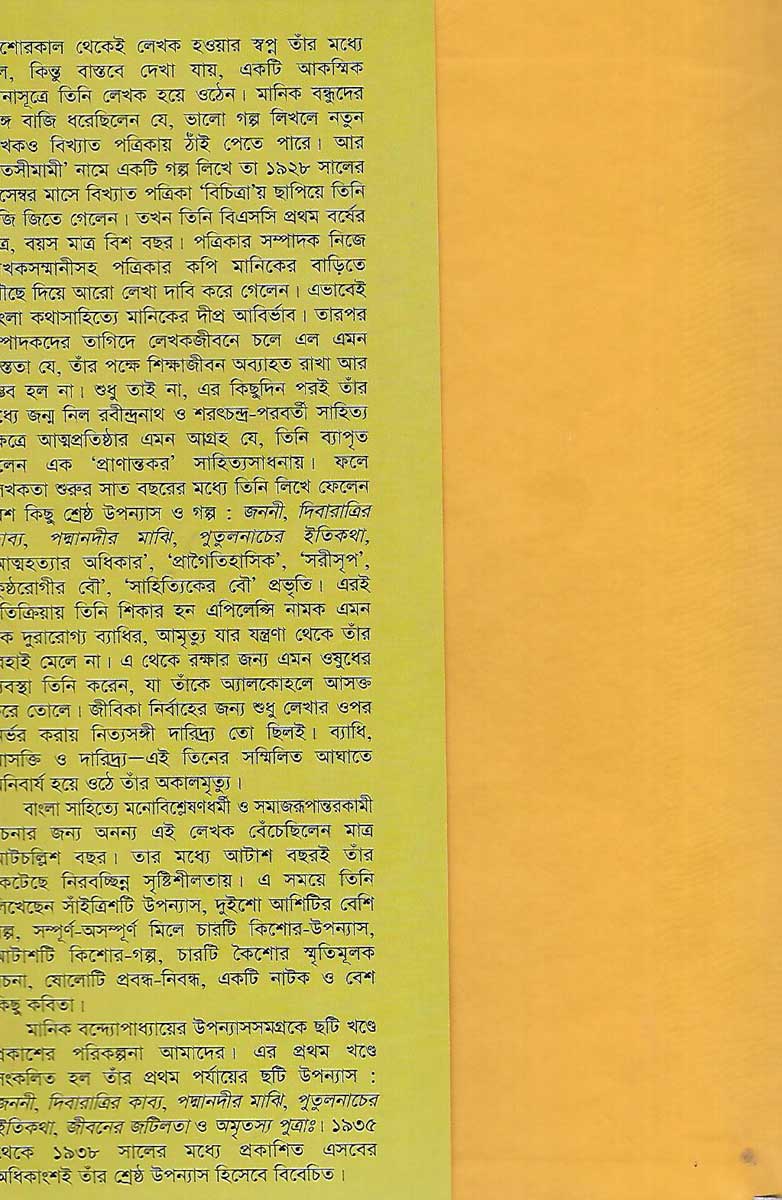 শোরকাল থেকেই লেখক হওয়ার স্বপ্ন তাঁর মধ্যে
ল, কিন্তু বাস্তবে দেখা যায়, একটি আকস্মিক
নাসূত্রে তিনি লেখক হয়ে ওঠেন। মানিক বন্ধুদের
ঙ্গে বাজি ধরেছিলেন যে, ভালো গল্প লিখলে নতুন
খকও বিখ্যাত পত্রিকায় ঠাঁই পেতে পারে। আর
তসীমামী’ নামে একটি গল্প লিখে তা ১৯২৮ সালের
সেম্বর মাসে বিখ্যাত পত্রিকা ‘বিচিত্রা’য় ছাপিয়ে তিনি
জি জিতে গেলেন। তখন তিনি বিএসসি প্রথম বর্ষের
ত্র, বয়স মাত্র বিশ বছর। পত্রিকার সম্পাদক নিজে
খকসম্মানীসহ পত্রিকার কপি মানিকের বাড়িতে
ৗঁছে দিয়ে আরো লেখা দাবি করে গেলেন। এভাবেই
ংলা কথাসাহিত্যে মানিকের দীপ্র আবির্ভাব। তারপর
ম্পাদকদের তাগিদে লেখকজীবনে চলে এল এমন
স্ততা যে, তাঁর পক্ষে শিক্ষাজীবন অব্যাহত রাখা আর
ম্ভব হল না। শুধু তাই না, এর কিছুদিন পরই তাঁর
ধ্যে জন্ম নিল রবীন্দ্রনাথ ও শরৎচন্দ্র-পরবর্তী সাহিত্য
ক্ষেত্রে আত্মপ্রতিষ্ঠার এমন আগ্রহ যে, তিনি ব্যাপৃত
লেন এক ‘প্রাণান্তকর’ সাহিত্যসাধনায়। ফলে
লেখকতা শুরুর সাত বছরের মধ্যে তিনি লিখে ফেলেন
বেশ কিছু শ্রেষ্ঠ উপন্যাস ও গল্প : জননী, দিবারাত্রির
কাব্য, পদ্মানদীর মাঝি, পুতুলনাচের ইতিকথা,
আত্মহত্যার অধিকার’, ‘প্রাগৈতিহাসিক’, ‘সরীসৃপ’,
কুষ্ঠরোগীর বৌ’, ‘সাহিত্যিকের বৌ’ প্রভৃতি। এরই
তিক্রিয়ায় তিনি শিকার হন এপিলেপ্সি নামক এমন
ক দুরারোগ্য ব্যাধির, আমৃত্যু যার যন্ত্রণা থেকে তাঁর
রেহাই মেলে না। এ থেকে রক্ষার জন্য এমন ওষুধের
ব্যবস্থা তিনি করেন, যা তাঁকে অ্যালকোহলে আসক্ত
করে তোলে। জীবিকা নির্বাহের জন্য শুধু লেখার ওপর
নির্ভর করায় নিত্যসঙ্গী দারিদ্র্য তো ছিলই। ব্যাধি,
আসক্তি ও দারিদ্র্য—এই তিনের সম্মিলিত আঘাতে
অনিবার্য হয়ে ওঠে তাঁর অকালমৃত্যু।
বাংলা সাহিত্যে মনোবিশ্লেষণধর্মী ও সমাজরূপান্তরকামী
রচনার জন্য অনন্য এই লেখক বেঁচেছিলেন মাত্র
আটচল্লিশ বছর। তার মধ্যে আটাশ বছরই তাঁর
কেটেছে নিরবচ্ছিন্ন সৃষ্টিশীলতায়। এ সময়ে তিনি
লিখেছেন সাঁইত্রিশটি উপন্যাস, দুইশো আশিটির বেশি
গল্প, সম্পূর্ণ-অসম্পূর্ণ মিলে চারটি কিশোর-উপন্যাস,
আটাশটি কিশোর-গল্প, চারটি কৈশোর স্মৃতিমূলক
রচনা, ষোলোটি প্রবন্ধ-নিবন্ধ, একটি নাটক ও বেশ
কিছু কবিতা।
মানিক বন্দ্যোপাধ্যায়ের উপন্যাসসমগ্রকে ছটি খণ্ডে
প্রকাশের পরিকল্পনা আমাদের। এর প্রথম খণ্ডে
সংকলিত হল তাঁর প্রথম পর্যায়ের ছটি উপন্যাস :
জননী, দিবারাত্রির কাব্য, পদ্মানদীর মাঝি, পুতুলনাচের
ইতিকথা, জীবনের জটিলতা ও অমৃতস্য পুত্রাঃ। ১৯৩৫
থেকে ১৯৩৮ সালের মধ্যে প্রকাশিত এসবের
অধিকাংশই তাঁর শ্রেষ্ঠ উপন্যাস হিসেবে বিবেচিত।